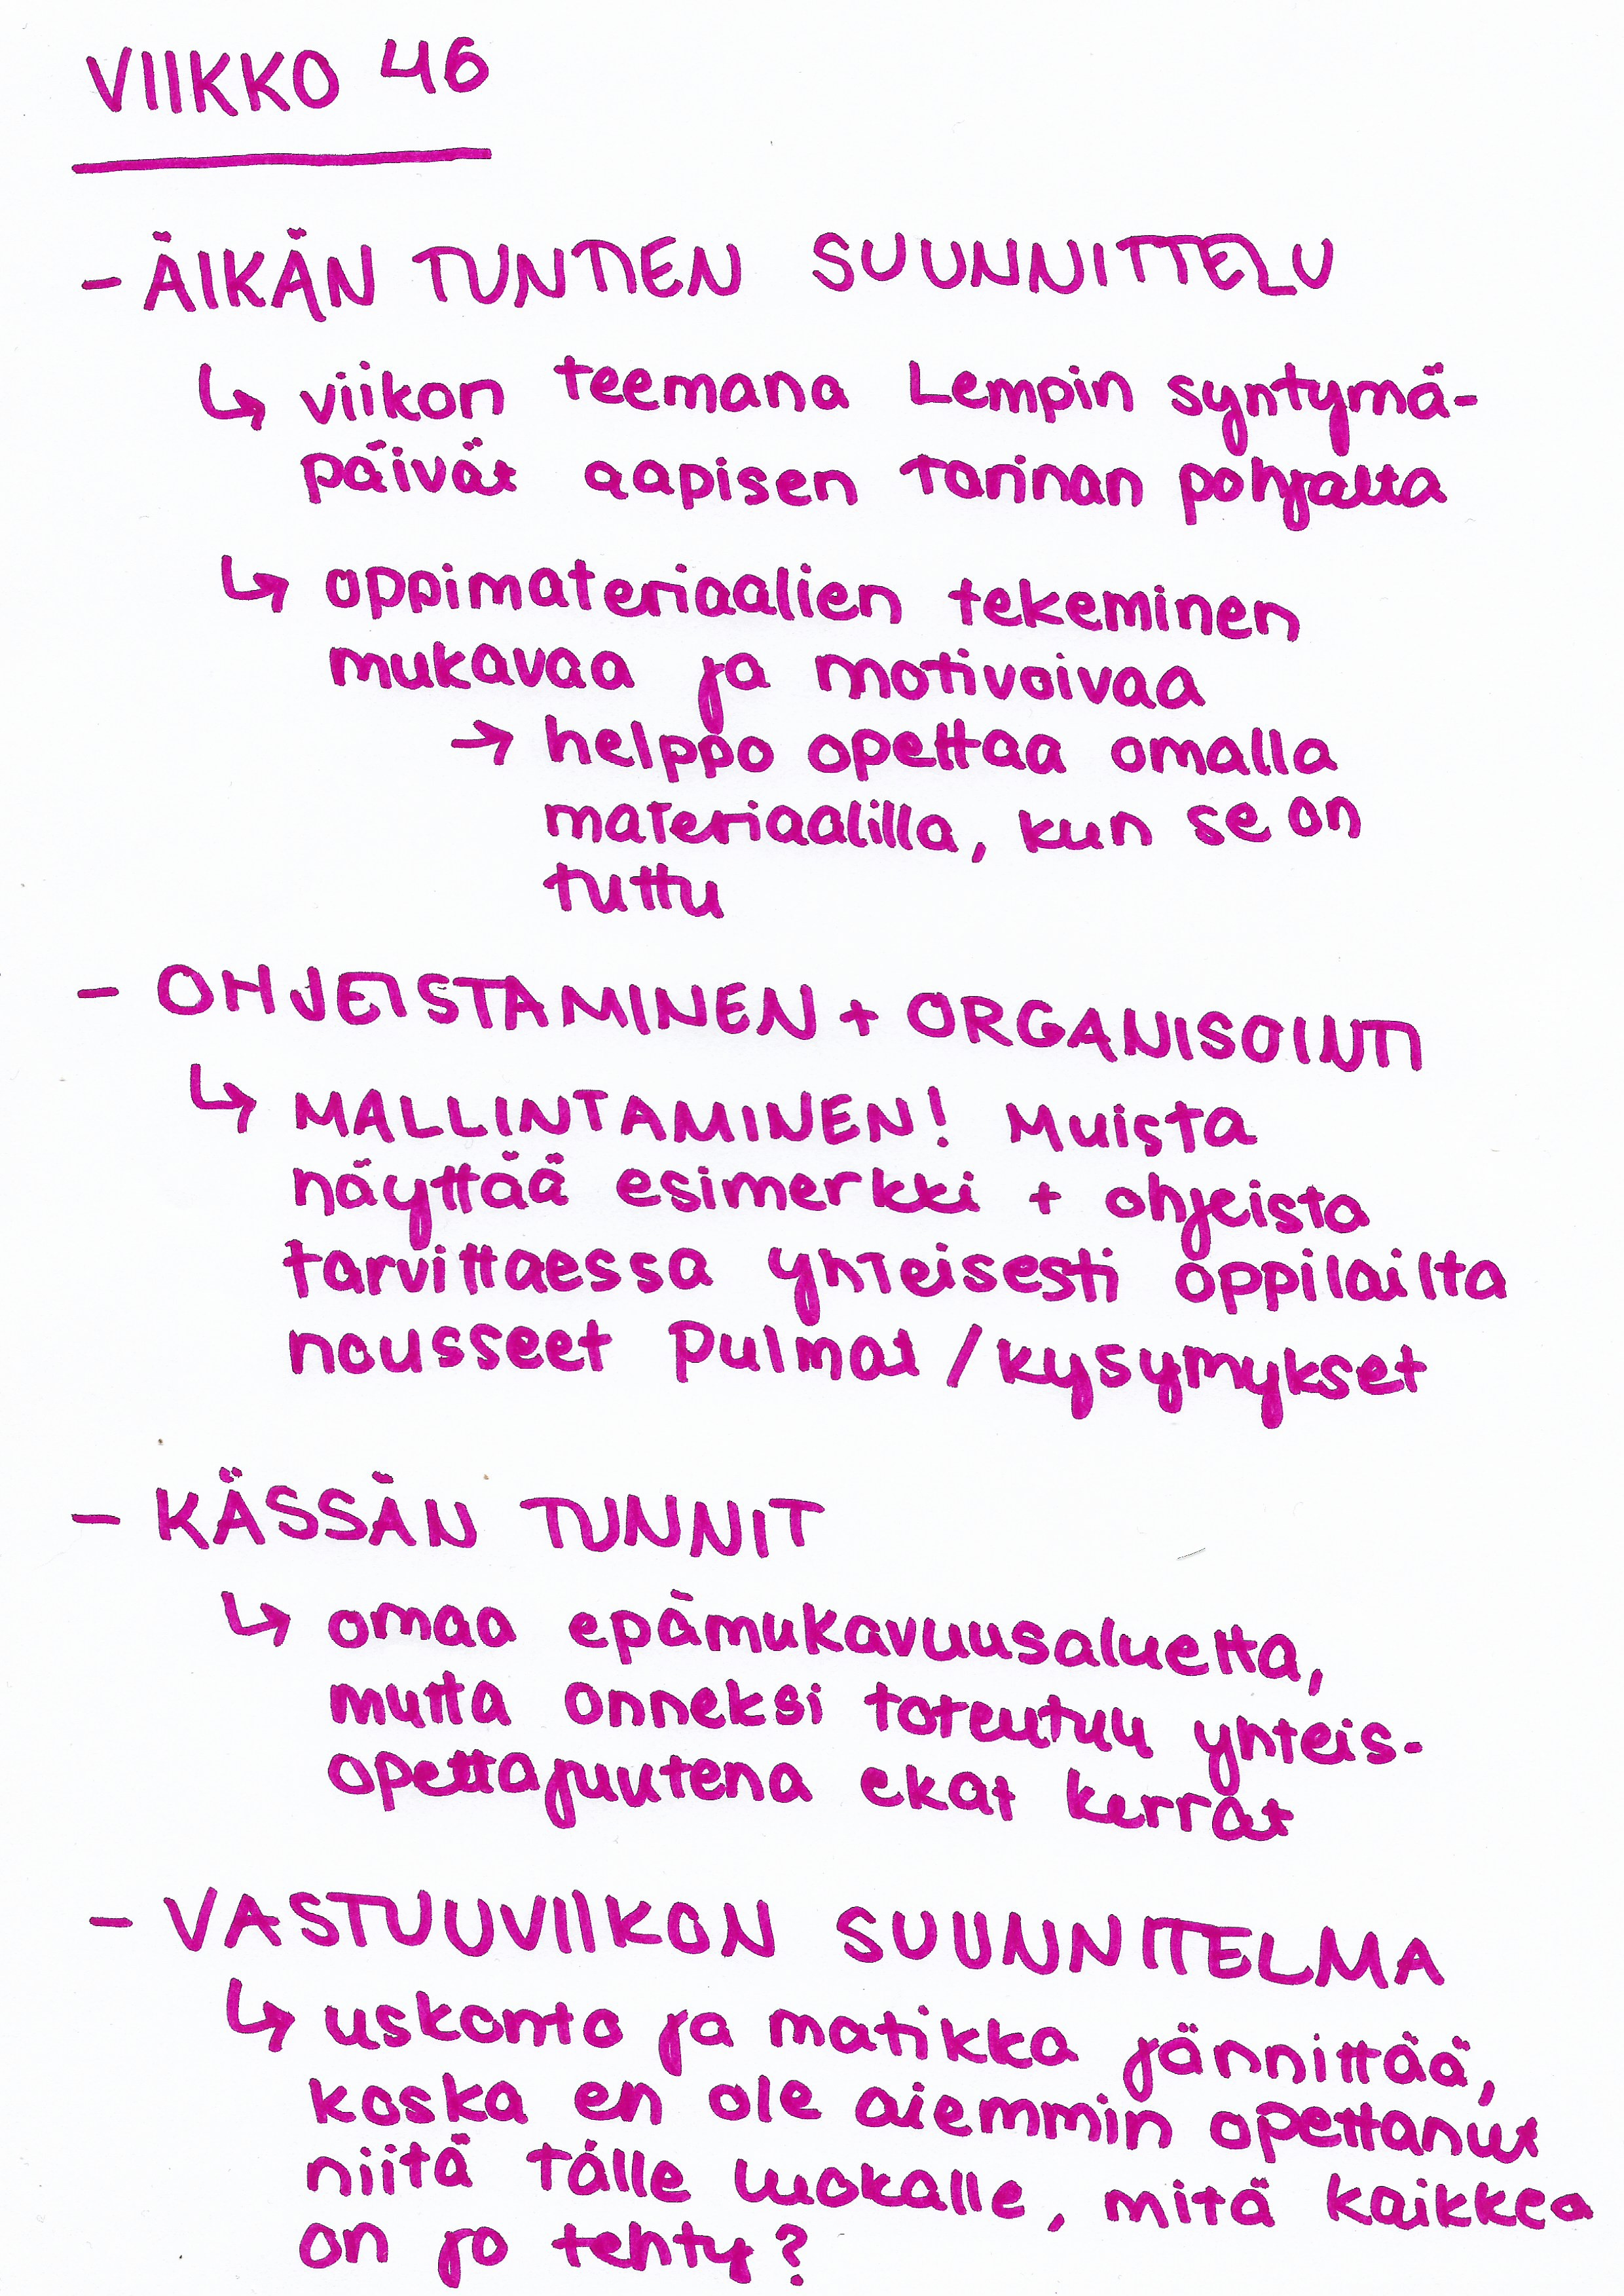 VIIKKO 46
- ÄIKÄN TUNTIEN SUUNNITTELU
↳ viikon teemana Lempin syntymä-
päivät aapisen tarinan pohjalta
↳ oppimateriaalien tekeminen
mukavaa ja motivoivaa
→ helppo opettaa omalla
materiaalilla, kun se on
tuttu
- OHJEISTAMINEN + ORGANISOINTI
↳ MALLINTAMINEN! Muista
näyttää esimerkki + ohjeista
tarvittaessa yhteisesti oppilailta
nousseet pulmat / kysymykset
- KÄSSÄN TUNNIT
↳ omaa epämukavuusaluetta,
mutta onneksi toteutuu yhteis-
opettajuutena ekat kerrat
- VASTUUVIIKON SUUNNITELMA
↳ uskonto ja matikka jännittää,
koska en ole aiemmin opettanut
niitä tälle luokalle, mitä kaikkea
on jo tehty?